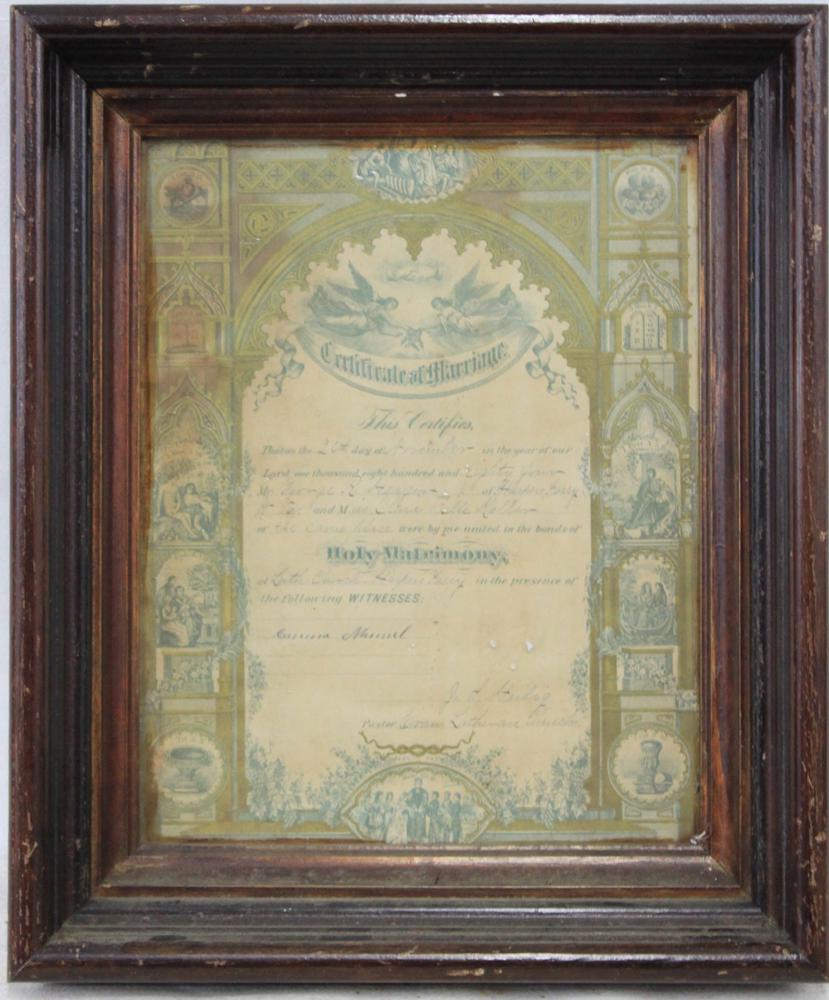 Certificate of Marriage.
This Certifies,
That on the 26th day of November in the year of our
Lord one thousand eight hundred and Eighty four
Mr. George of Harpers Ferry
W. Va. and M
of the same place were by me united in the bonds of
Holy Matrimony,
at Luth. Church Harpers Ferry in the presence of
the following WITNESSES:
Pastor Evan. Lutheran Church